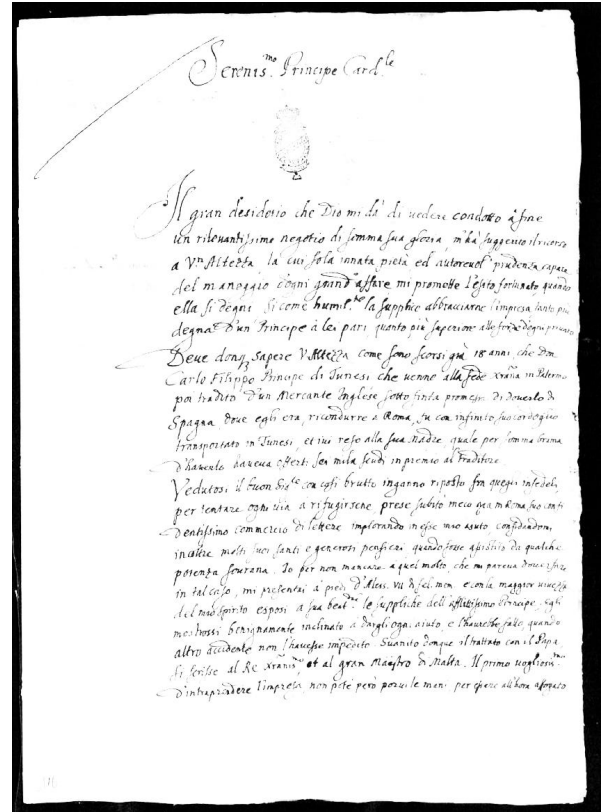 Serenis.mo Principe Card.le
Il gran desiderio che Dio mi dà di vedere condotto à fine
un rilevantissimo negotio di somma sua gloria, m'hà suggerito il ricorso
a V.ra Altezza la cui sola innata pietà ed autorevol prudenza capace
del maneggio d'ogni grand'affare mi promette l'esito fortunato quando
ella si degni si come humil.te la supplico abbracciarne l'impresa tanto più
degna d'un Principe à lei pari quanto più superiore alle forze d'ogni privato
Deve donq3 sapere V Altezza come sono scorsi già 18 anni, che Don
Carlo Filippo Principe di Tunesi che venne alla fede Xrãna in Palermo
poi tradito d'un Mercante Inglese sotto finta promessa di doverlo di
Spagna dove egli era, ricondurre a Roma, fu con infinito suo cordoglio
transportato in Tunesi, et ivi reso alla sua Madre, quale per somma brama
d'haverlo haveva offerti sei mila scudi in premio al traditore.
Vedutosi il buon Sig.re con così brutto inganno riposto fra quegli infedeli,
per tentare ogni via a rifugirsene prese subito meco qua in Roma suo confi
dentissimo commercio di lettere implorando in esse mio aiuto, confidandomi
inoltre molti suoi santi e generosi pensieri quando fosse assistito da qualche
potenza sourana. Io per non mancare a quel molto, che mi pareva dover fare
in tal caso, mi presentai à piedi d'Aless. VII di fel. mem. e con la maggior vivezza
del mio spirito esposi a sua beat.ne le suppliche dell'afflittissimo Principe. Egli
mostrossi benignamente inclinato a dargli ogni aiuto e l'havrebbe fatto, quando
altro accidente non l'havesse impedito. Suanito donque il trattato con il Papa
si scrisse al Re Xrãnis.mo et al gran Maestro di Malta. Il primo vogliosis.mo
d'intraprendere l'impresa non potè però porvi le mani per essere all'hora